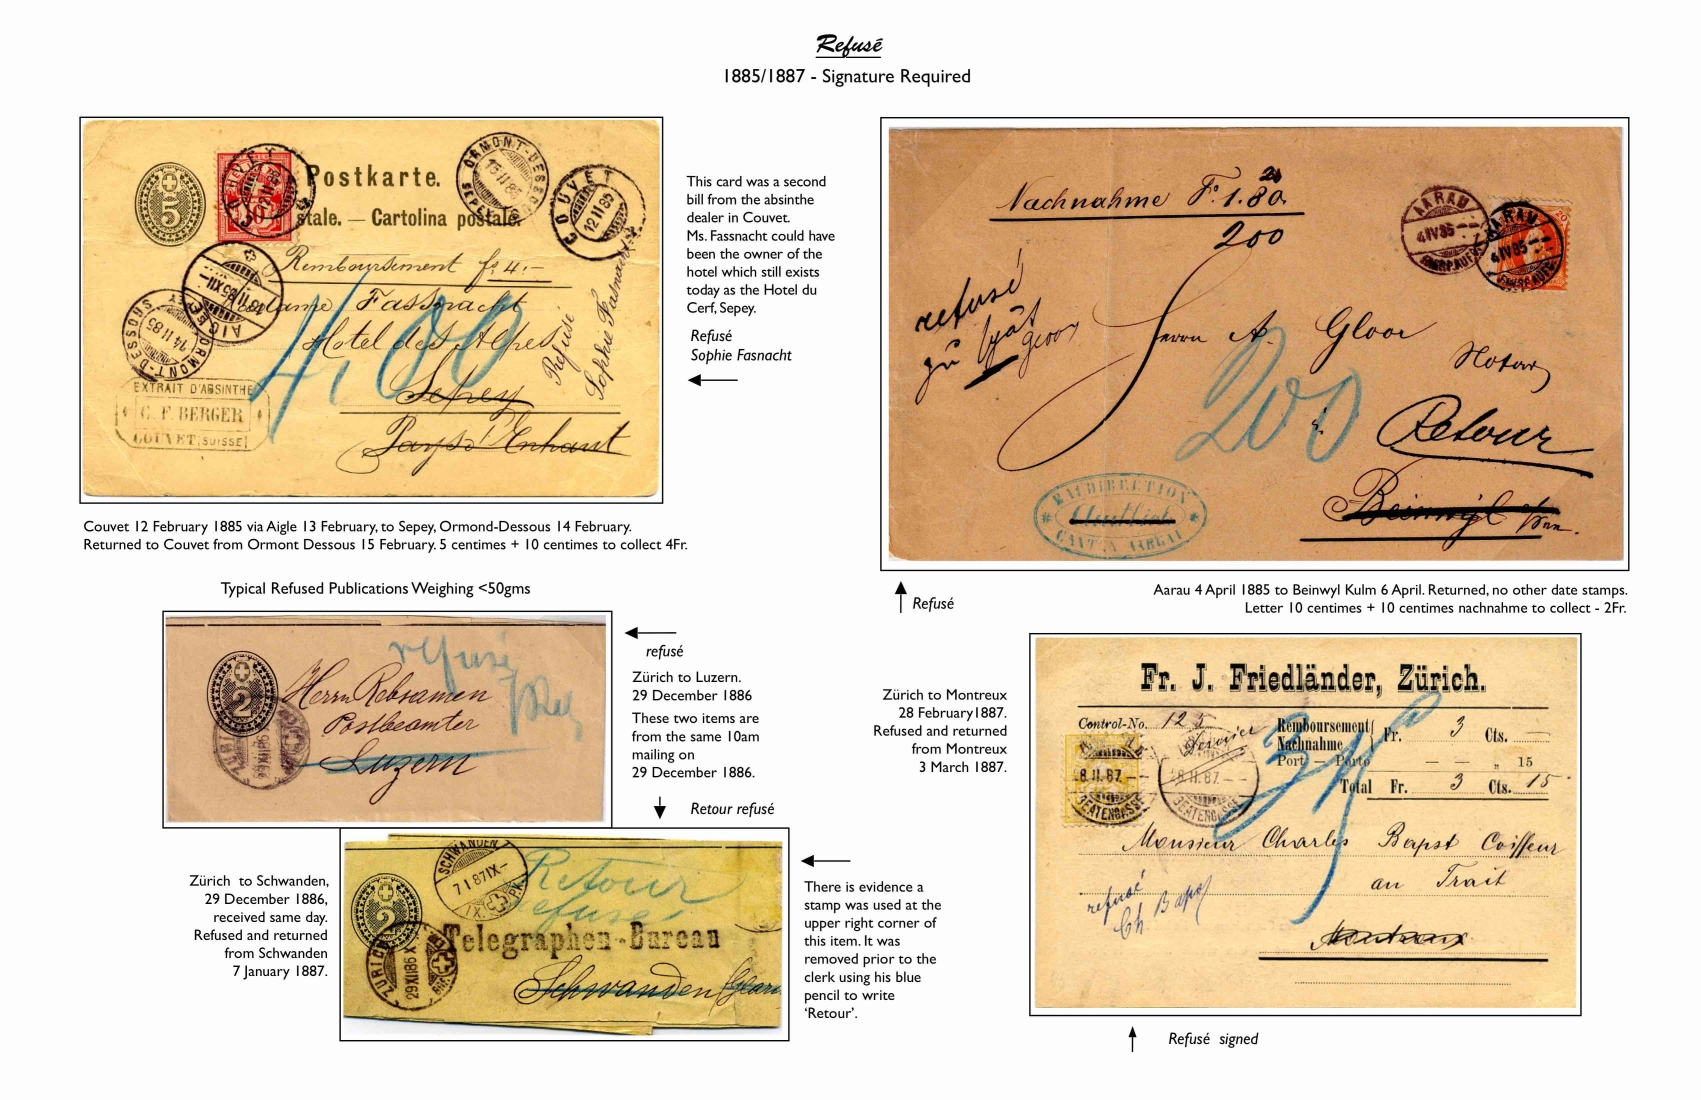 Refusé
1885/1887 - Signature Required
Postkarte.
stale. — Cartolina postale.
5
COUVET
12 II 85
ORMONT-DESSOUS
SEPEY
COUVET
12 II 85
Remboursement fr 4.-
Madame Fassnacht
Hotel des Alpes
Sepey
Pays d'Enhaut
4,00
Refusé
Sophie Fasnacht
AIGLE
13 II 85 XII
ORMONT-DESSOUS
14 II 85
SEPEY
EXTRAIT D'ABSINTHE
C. F. BERGER
COUVET (SUISSE)
This card was a second
bill from the absinthe
dealer in Couvet.
Ms. Fassnacht could have
been the owner of the
hotel which still exists
today as the Hotel du
Cerf, Sepey.
Refusé
Sophie Fasnacht
Couvet 12 February 1885 via Aigle 13 February, to Sepey, Ormond-Dessous 14 February.
Returned to Couvet from Ormont Dessous 15 February. 5 centimes + 10 centimes to collect 4Fr.
Nachnahme Fr. 1.80.
20
200
AARAU
4 IV 85
AARAU
4 IV 85
20
refusé
zu spät
Gloor
Herrn A. Gloor
Notar
200
Retour
Beinwyl
BAUDIRECTION
CANTON AARGAU
Refusé
Aarau 4 April 1885 to Beinwyl Kulm 6 April. Returned, no other date stamps.
Letter 10 centimes + 10 centimes nachnahme to collect - 2Fr.
Typical Refused Publications Weighing <50gms
refusé
2
Herrn Rebsamen
Postbeamter
Luzern
refusé
Zürich to Luzern.
29 December 1886
These two items are
from the same 10am
mailing on
29 December 1886.
Retour refusé
Zürich to Schwanden,
29 December 1886,
received same day.
Refused and returned
from Schwanden
7 January 1887.
SCHWANDEN
7 I 87 IX–
Retour
refusé
2
ZÜRICH
29 XII 86 X
Telegraphen-Bureau
Schwanden Glarus
There is evidence a
stamp was used at the
upper right corner of
this item. It was
removed prior to the
clerk using his blue
pencil to write
‘Retour’.
Zürich to Montreux
28 February1887.
Refused and returned
from Montreux
3 March 1887.
Fr. J. Friedländer, Zürich.
Control-No. 125
Remboursement
Nachnahme
Fr. 3 Cts. —
Port — Porto — — „ 15
Total Fr. 3 Cts. 15
8.II.87.
BEATENGASSE
8.II.87.
BEATENGASSE
Monsieur Charles Bapst Coiffeur
au Trait
refusé
Ch Bapst
Montreux
Refusé signed